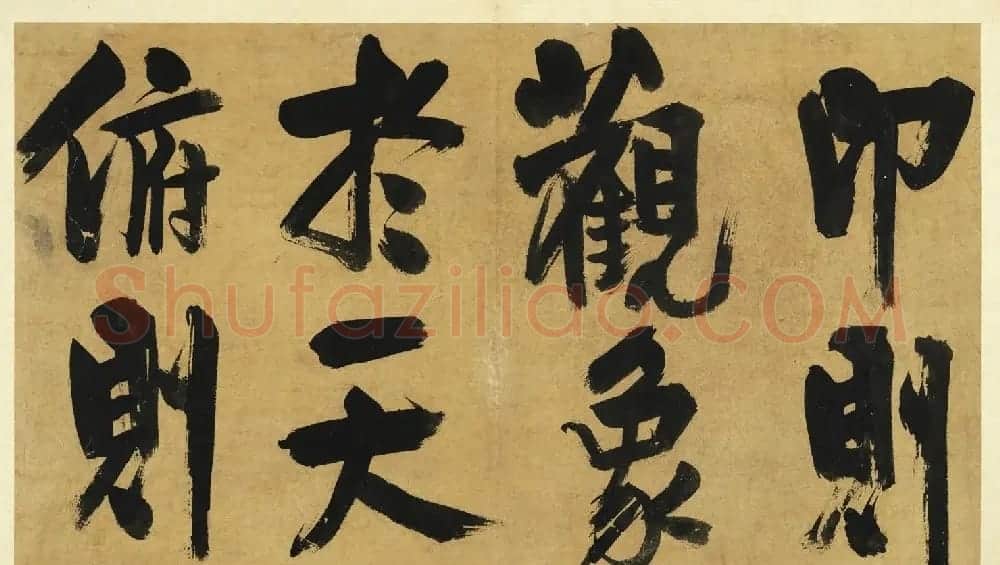 卬則
觀象
於天
俯則
Shufaziliao.COM